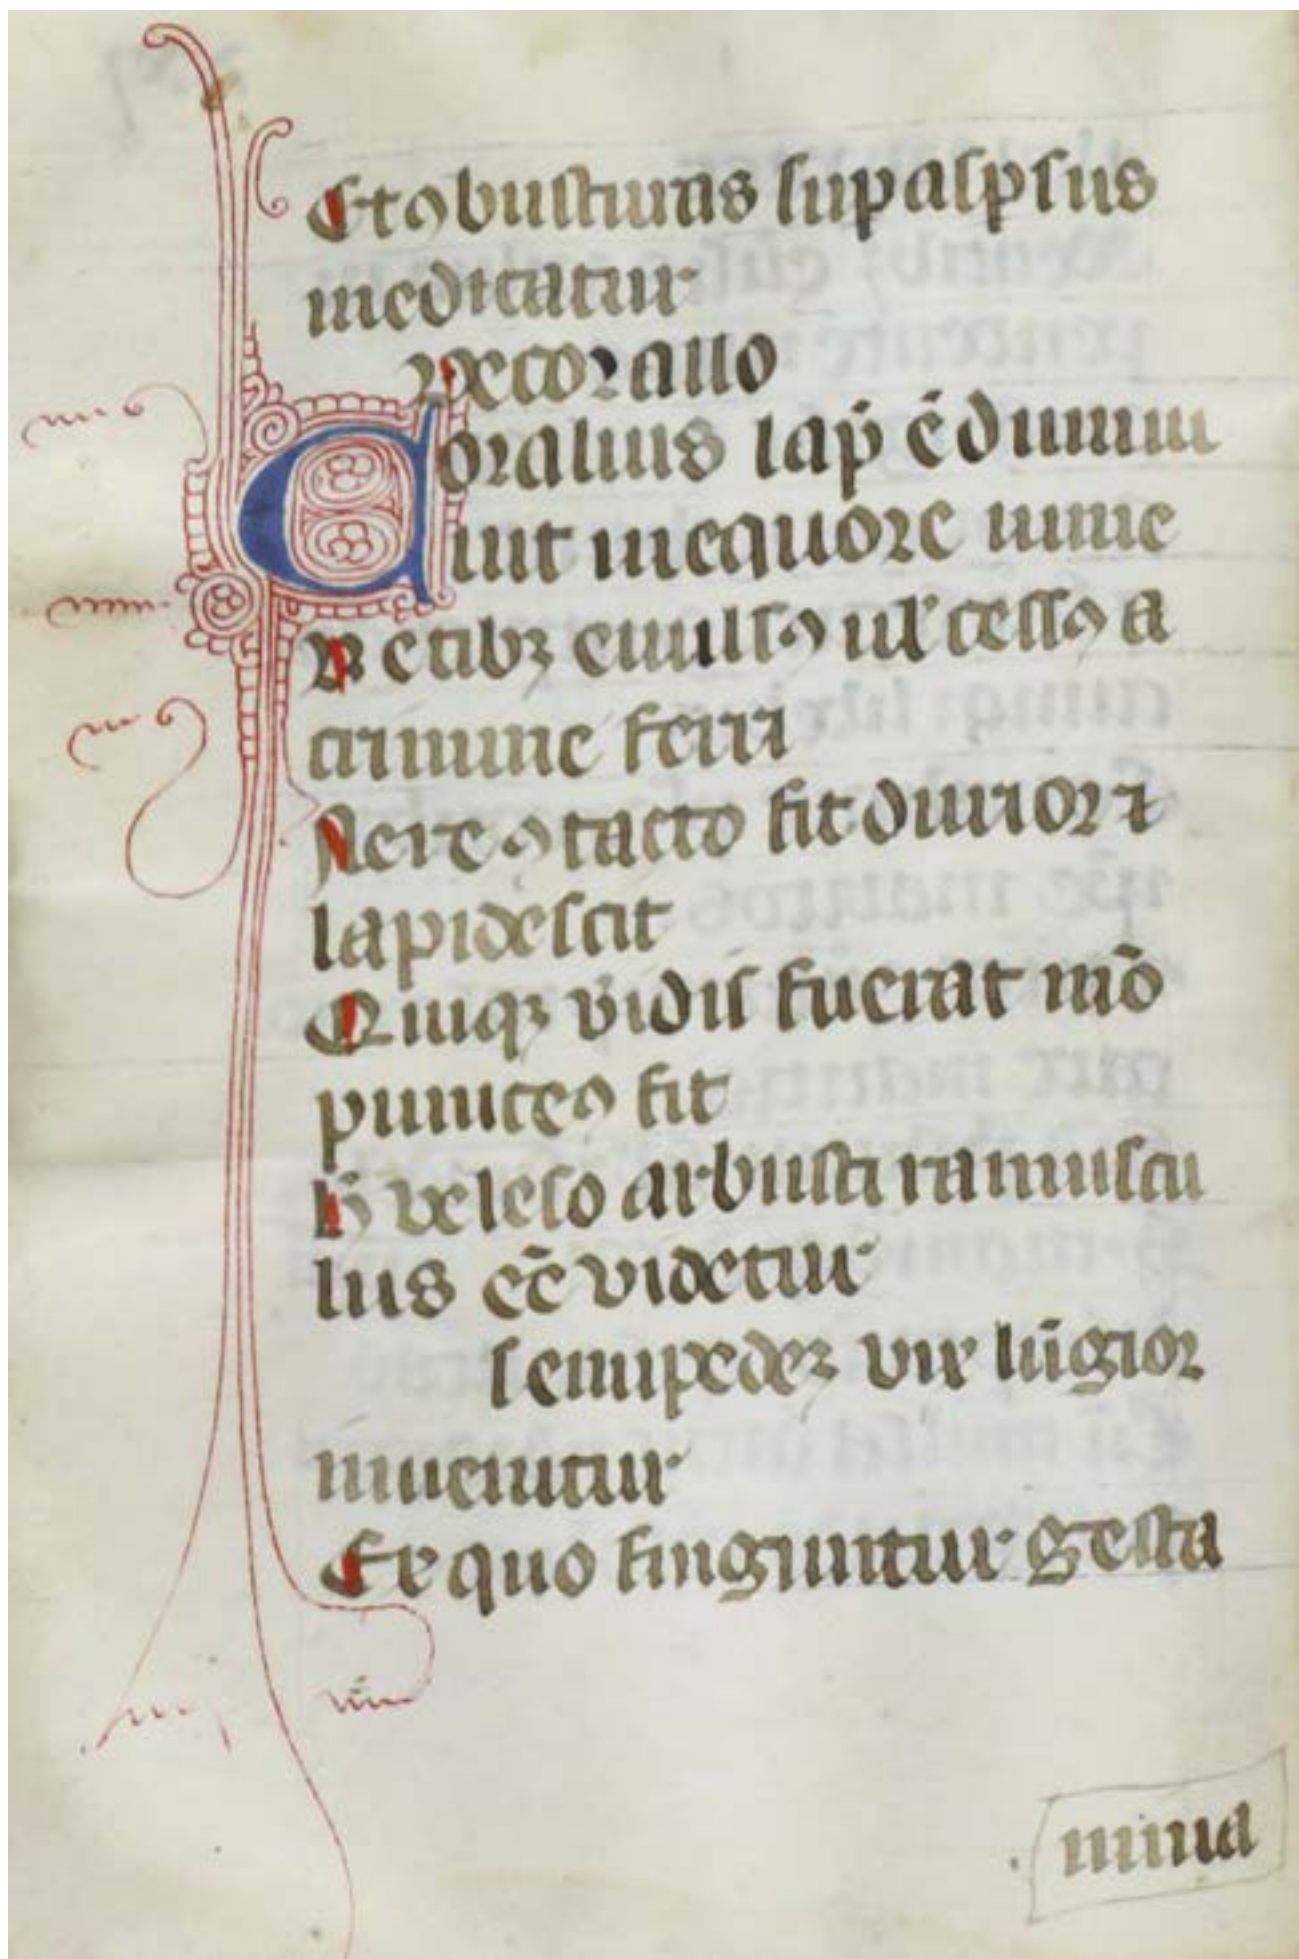 Et ꝯbustiuras sup aspsus
meditatur
De corallo
Coralius lap̄ ē dum ui
uit in equore uime
Retibꝫ euulsꝯ ul' cessꝯ a
cimine ferri
Aere ꝯtacto fit durior ⁊
lapidescit
Quiqꝫ viidis fuerat mō
puniceꝯ fit
H veleso arbusti ramuscu
lus eē videtur
semipedeꝫ vix lūgior
inueiutur
Ex quo finguntur gesta
mina